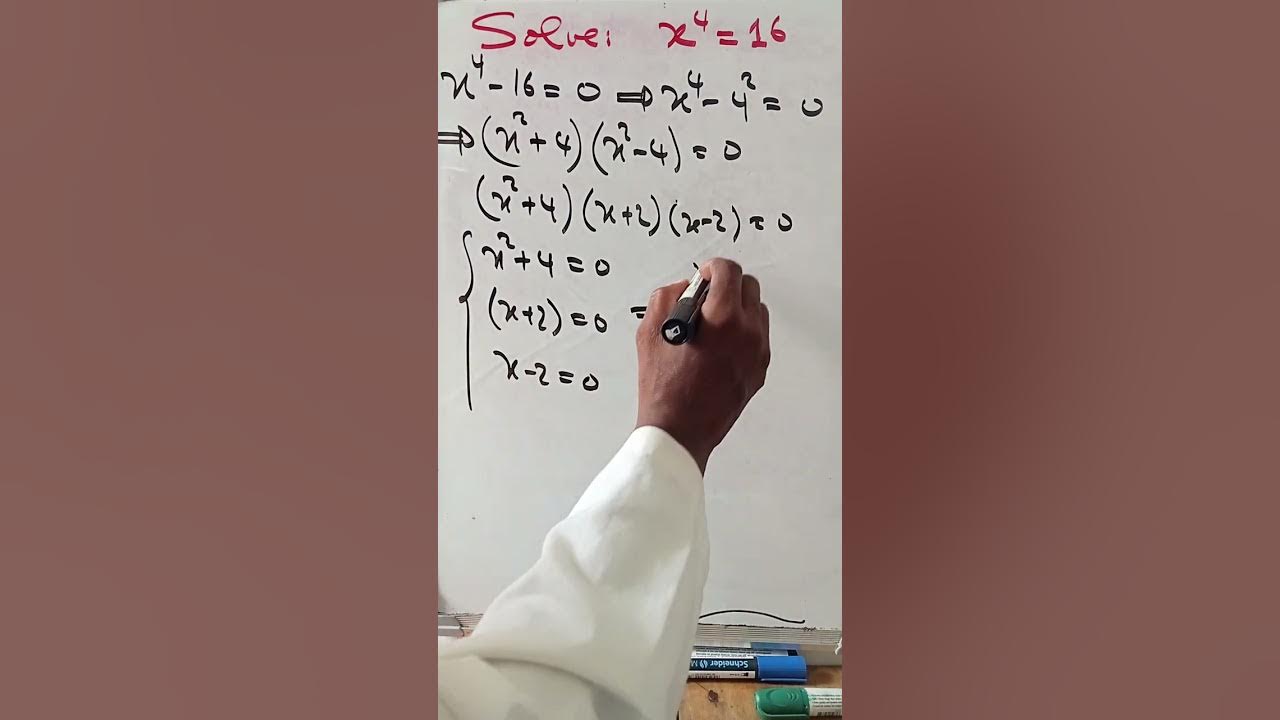 Solve: x⁴ = 16
x⁴ - 16 = 0 ⇒ x⁴ - 4² = 0
⇒ (x² + 4)(x² - 4) = 0
(x² + 4)(x + 2)(x - 2) = 0
x² + 4 = 0
(x + 2) = 0 =
x - 2 = 0
Schneider